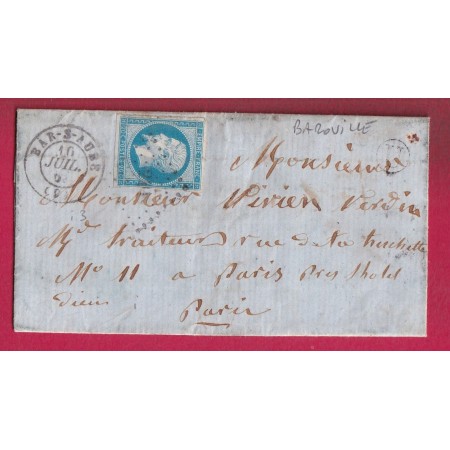 BAROVILLE
BAR-S-AUBE
16
JUIL.
(9)
Monsieur
Monsieur Vivien Verdin
Md traiteur rue de la huchette
No 11 a Paris pres lhotel
dieu
Paris